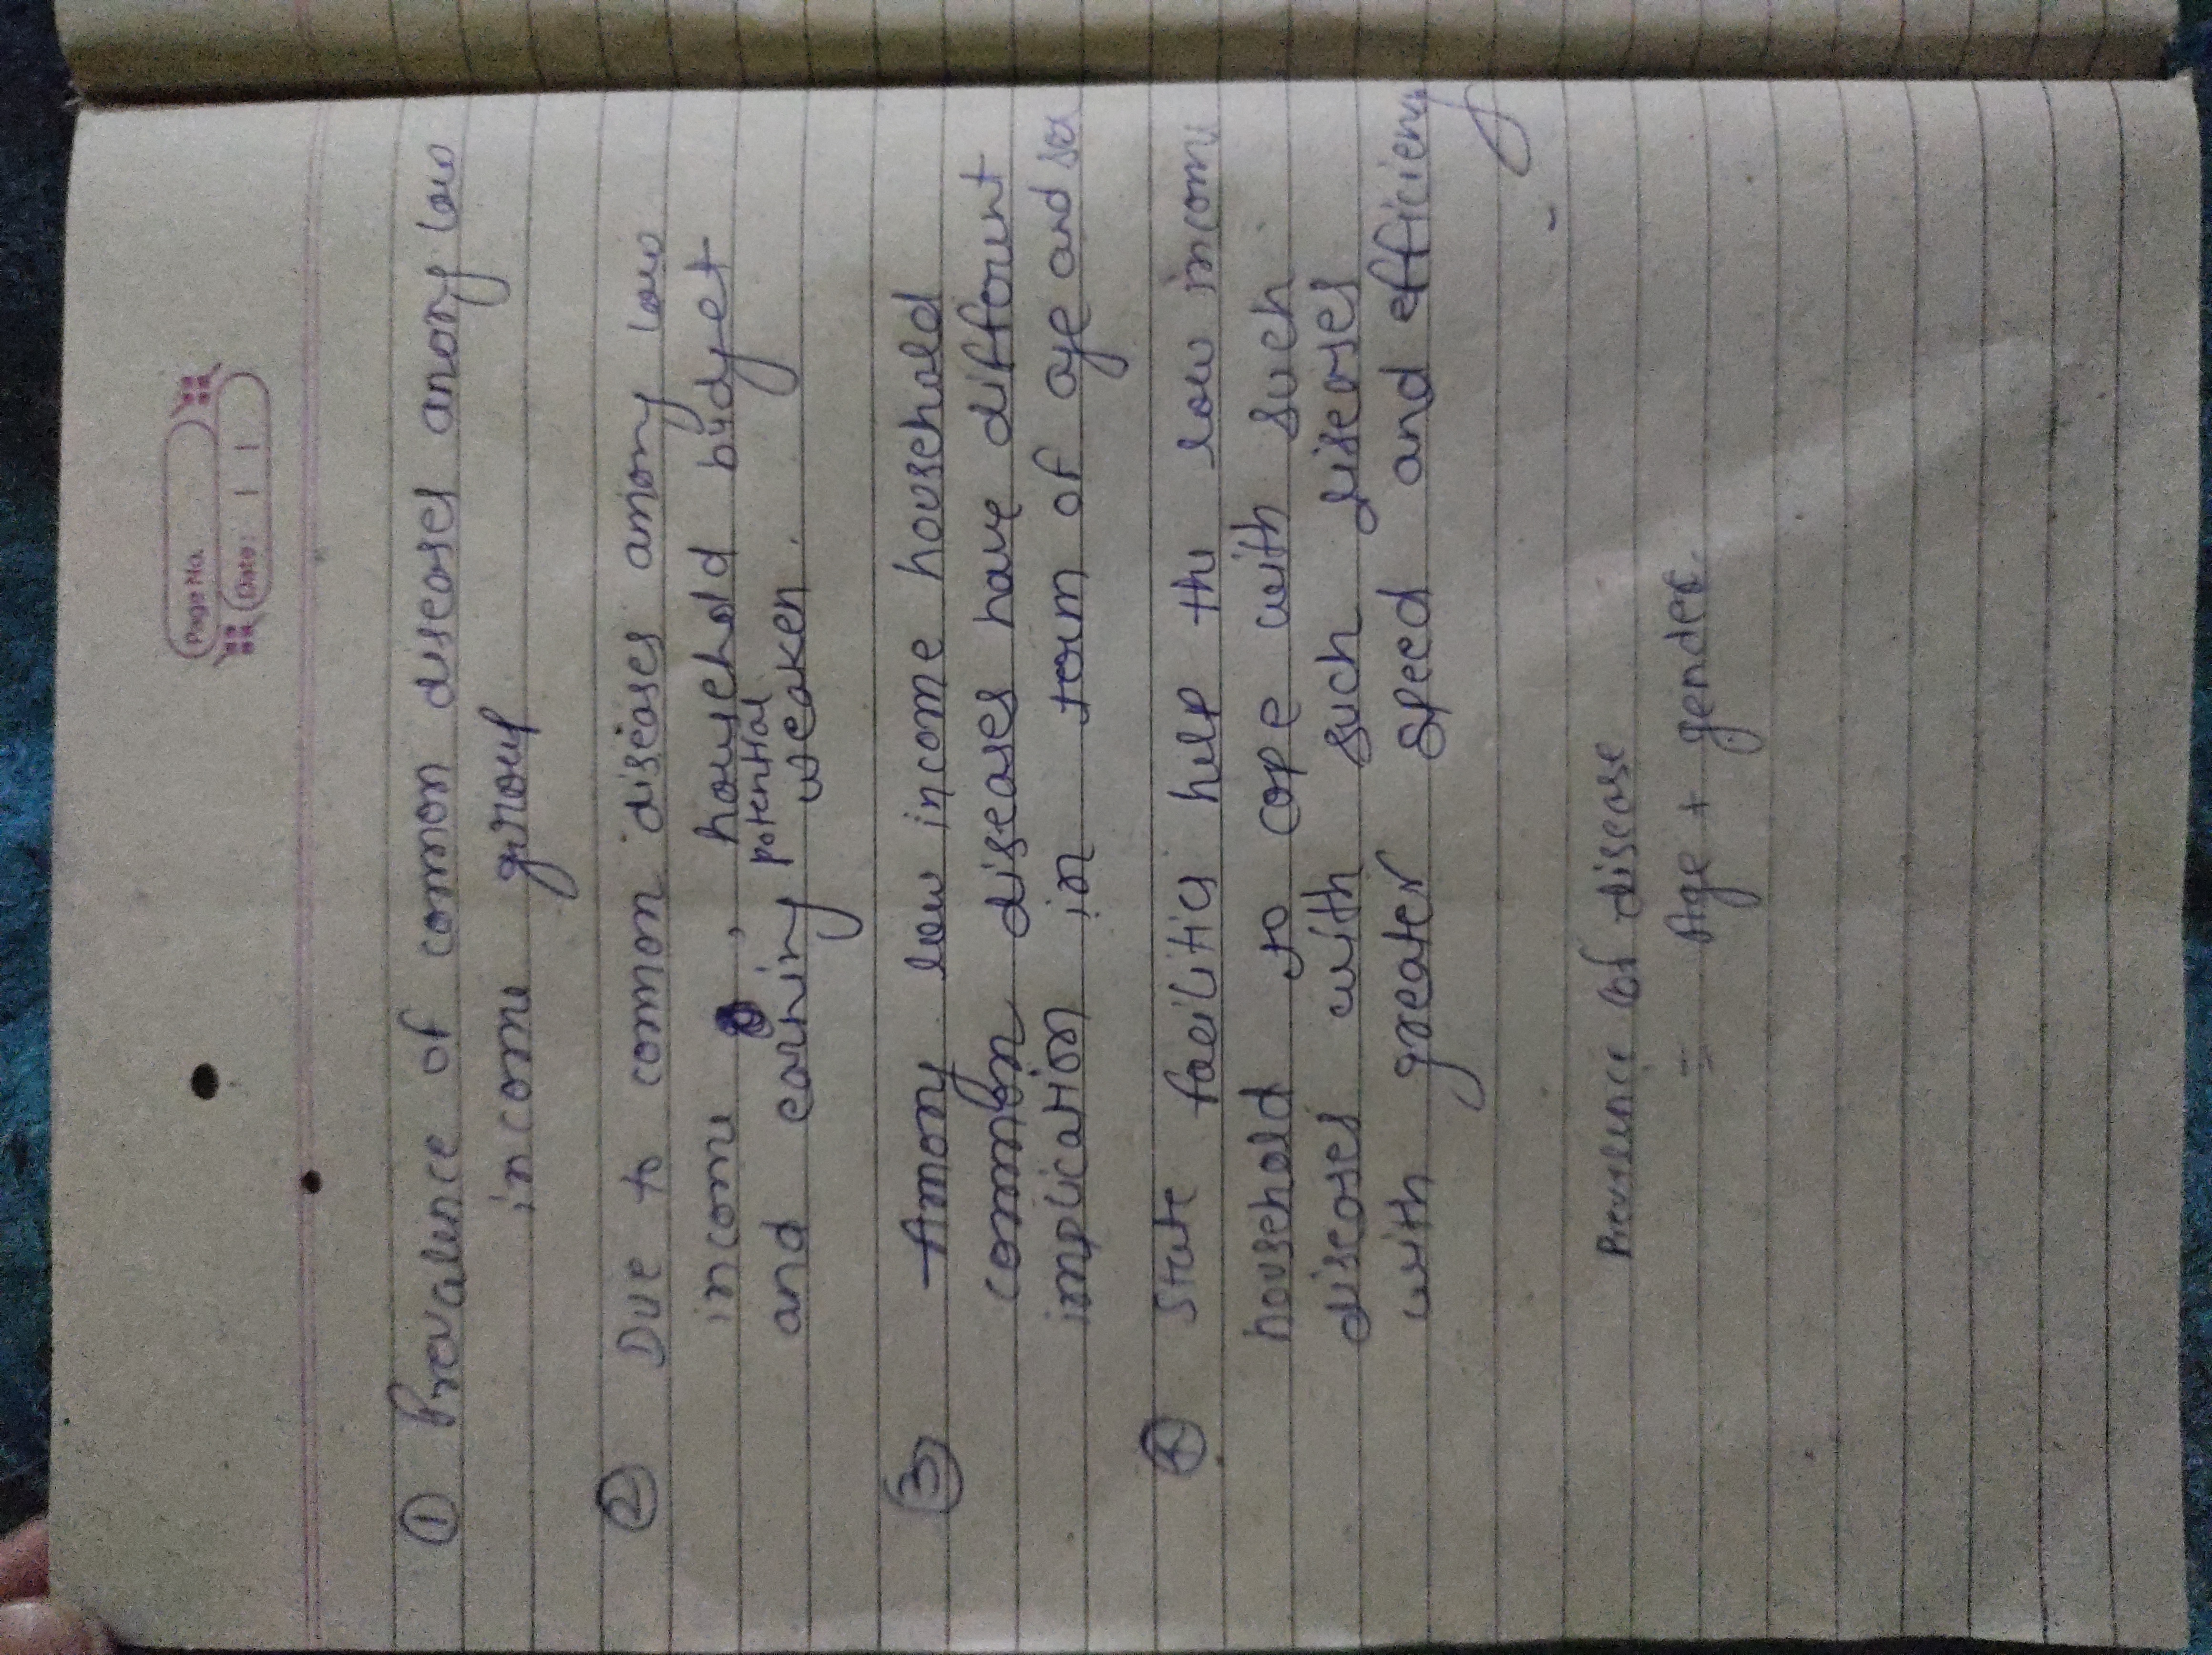 Page No.
Date: / /
① Prevalence of common diseases among low
income group
② Due to common diseases among low
income , household budget
potential
and earning weaken.
③ Among low income household
common diseases have different
implication in term of age and sex
④ State facilities help the low income
household to cope with such
diseases with such diseases
with greater speed and efficiency
Prevalence of disease
= Age + gender